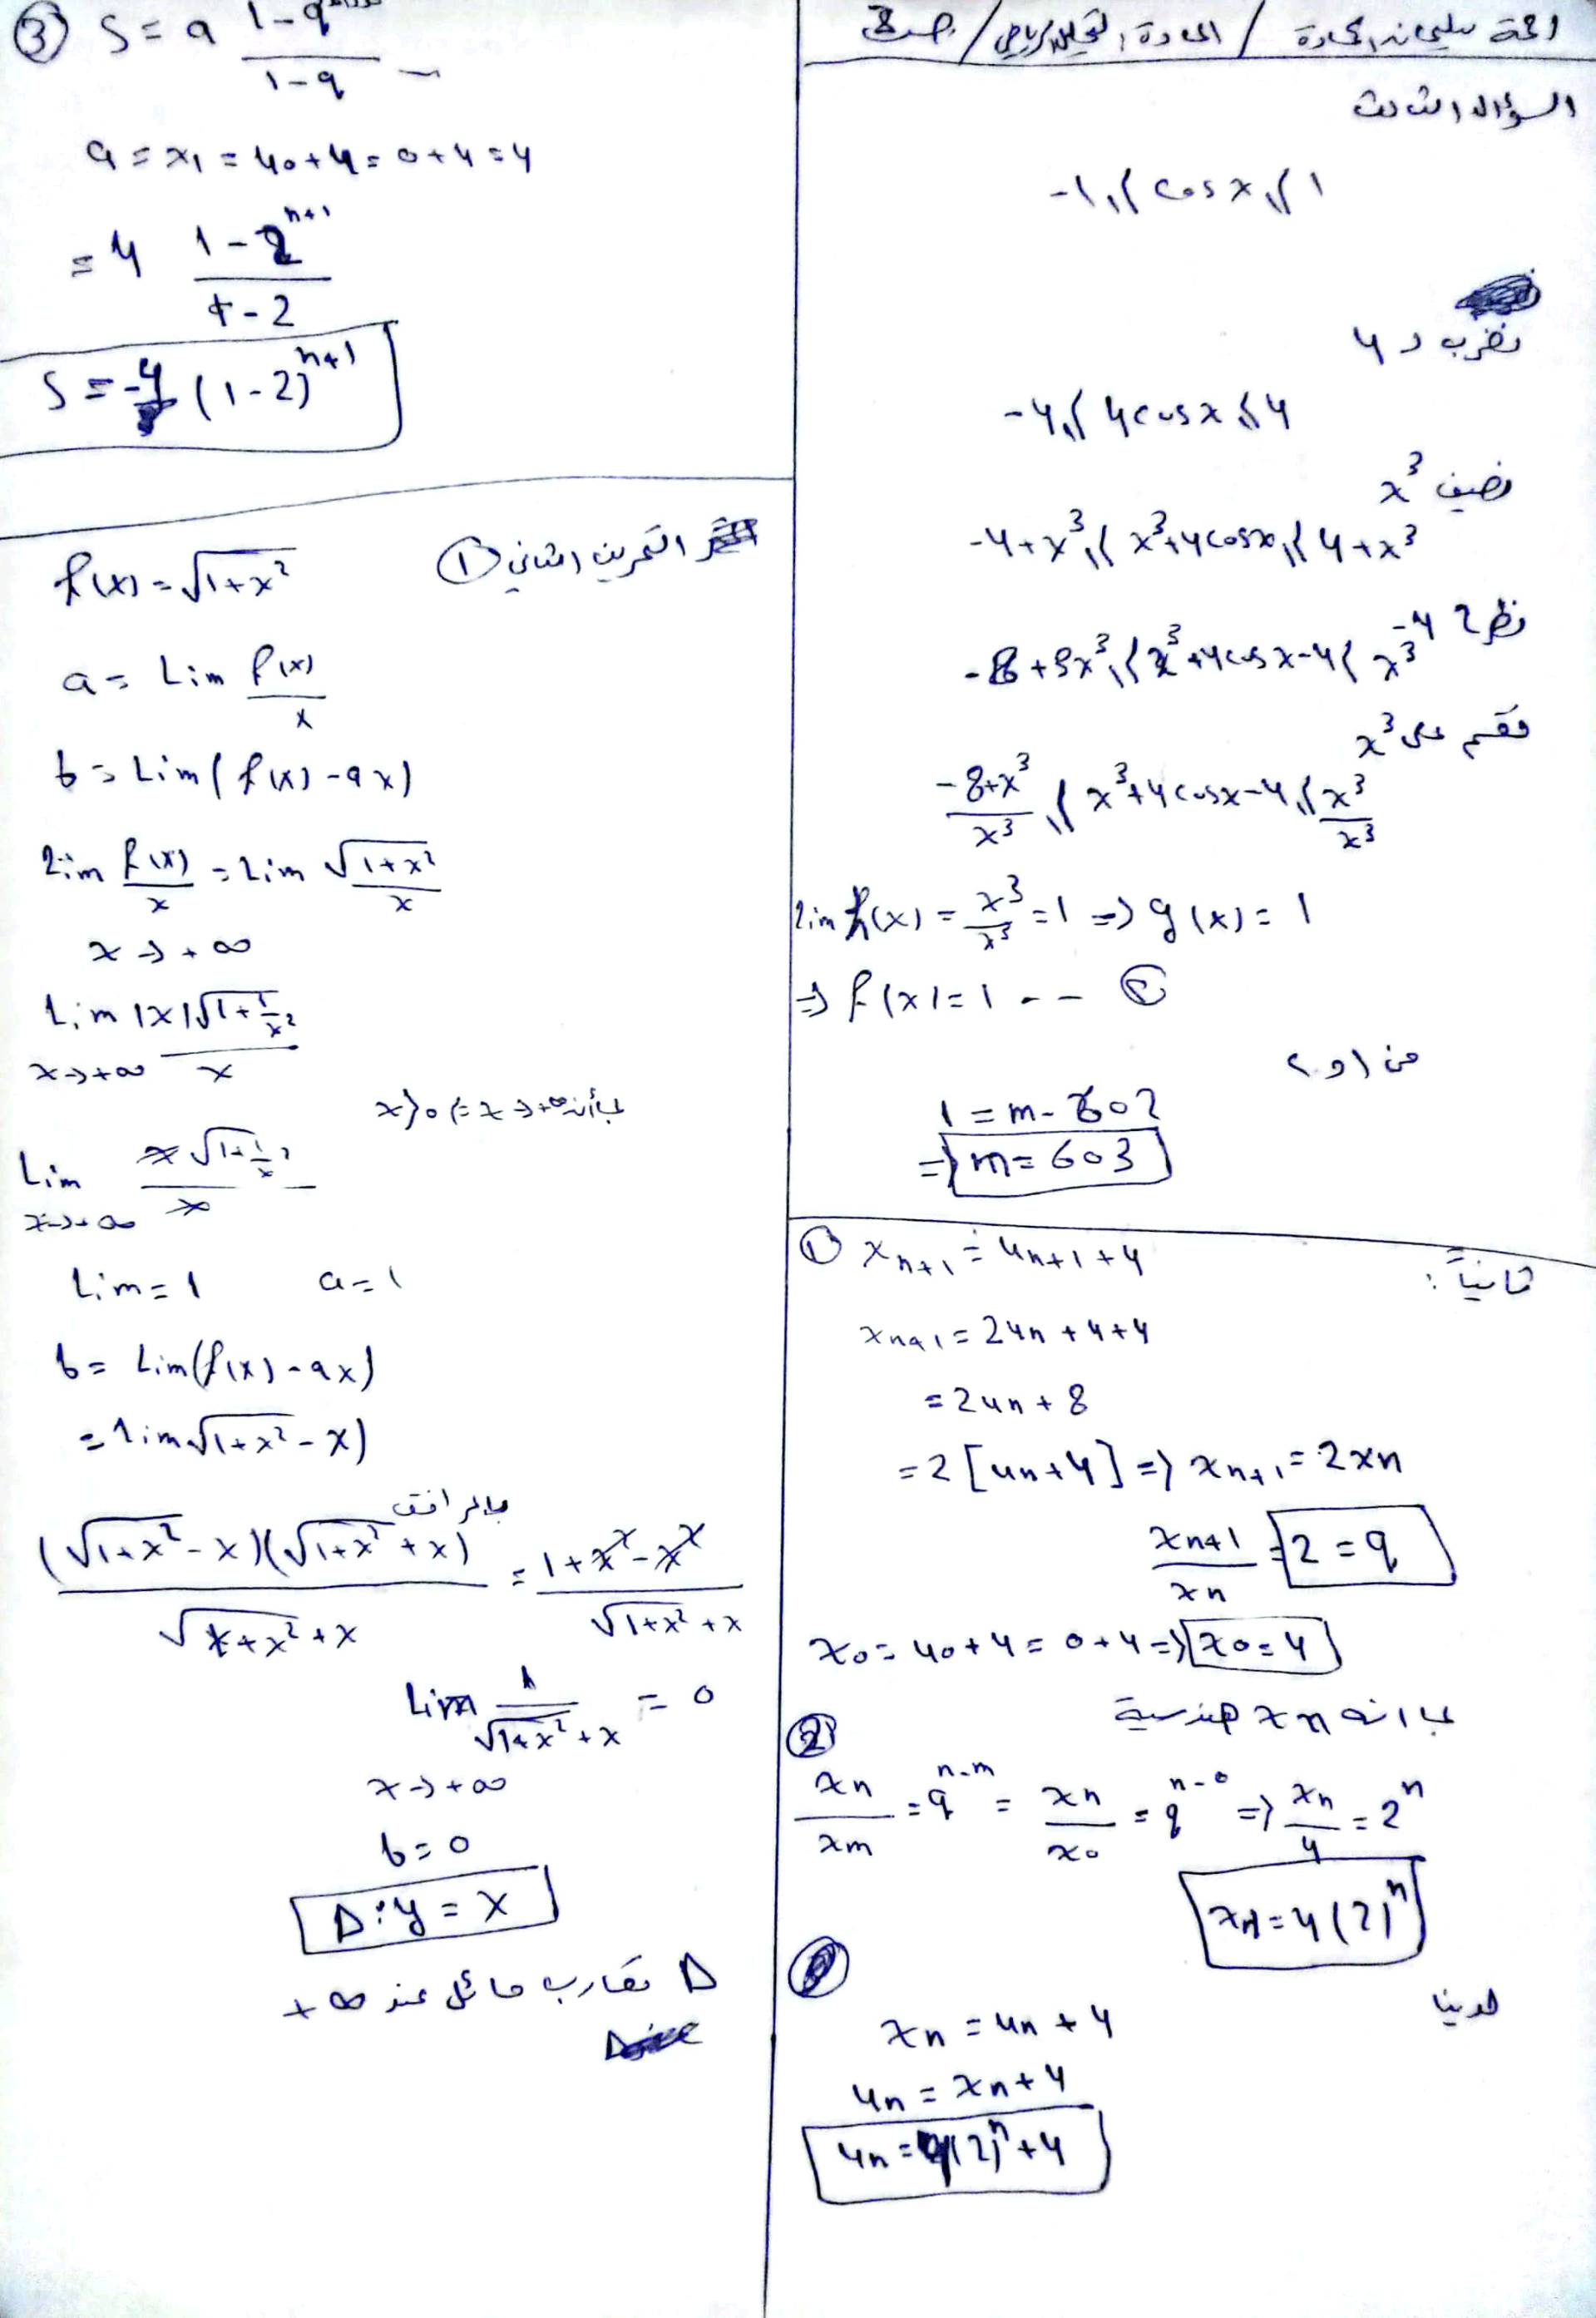 المادة التحليل الرياضي / صـ
السؤال الثالث
-1 ≤ cos x ≤ 1
نضرب د 4
-4 ≤ 4cos x ≤ 4
نضيف x³
-4+x³ ≤ x³+4cosx ≤ 4+x³
نطرح 4
-8+x³ ≤ x³+4cosx-4 ≤ x³
نقسم على x³
-8+x³/x³ ≤ x³+4cosx-4 ≤ x³/x³
lim h(x) = x³/x³ = 1 => g(x) = 1
=> f(x) = 1 --- ②
من 1 و 2
1 = m - 602
=> m = 603
ثانياً:
① xn+1 = un+1 + 4
xn+1 = 2un + 4 + 4
= 2un + 8
= 2[un+4] => xn+1 = 2xn
xn+1/xn = 2 = q
x0 = u0+4 = 0+4 => x0 = 4
بما انه xn هندسية
②
xn/xm = q^n-m = xn/x0 = q^n-0 => xn/4 = 2^n
xn = 4(2)^n
لدينا
xn = un + 4
un = xn + 4
un = 4(2)^n + 4
③ S = a 1-q/1-q
a = x1 = u0+4 = 0+4 = 4
= 4 1-2^n+1/1-2
S = -4(1-2)^n+1
التمرين الثاني ①
f(x) = √1+x²
a = Lim f(x)/x
b = Lim(f(x)-ax)
Lim f(x)/x = Lim √1+x²/x
x → +∞
Lim |x|√1+1/x²/x
x → +∞
بما أن x → +∞ => x > 0
Lim x√1+1/x²/x
x → +∞
Lim = 1 a = 1
b = Lim(f(x)-ax)
= Lim √1+x² - x)
بالمرافق
(√1+x² - x)(√1+x² + x)/√1+x² + x = 1+x²-x²/√1+x² + x
Lim 1/√1+x² + x = 0
x → +∞
b = 0
Δ: y = x
Δ مقارب مائل عند +∞